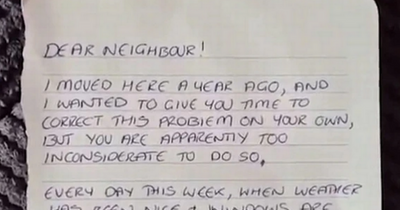 DEAR NEIGHBOUR!
I MOVED HERE A YEAR AGO, AND
I WANTED TO GIVE YOU TIME TO
CORRECT THIS PROBLEM ON YOUR OWN,
BUT YOU ARE APPARENTLY TOO
INCONSIDERATE TO DO SO.
EVERY DAY THIS WEEK, WHEN WEATHER
HAS BEEN NICE & WINDOWS ARE